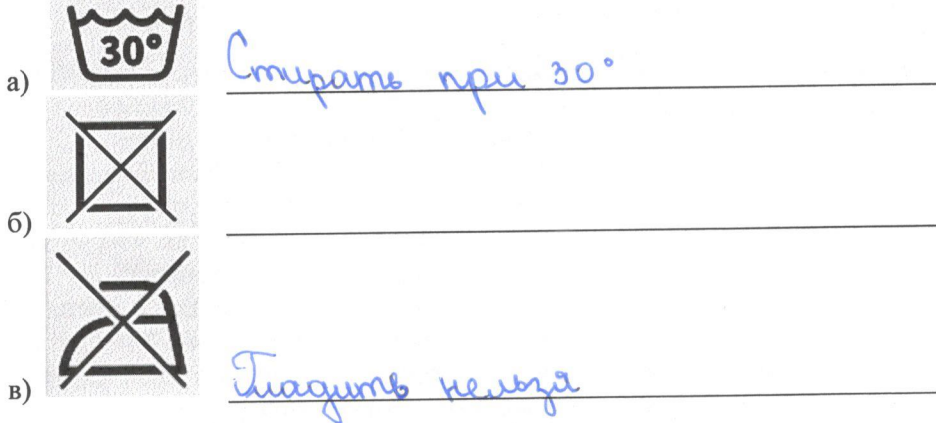 30°
а) Стирать при 30°
б)
в) Гладить нельзя